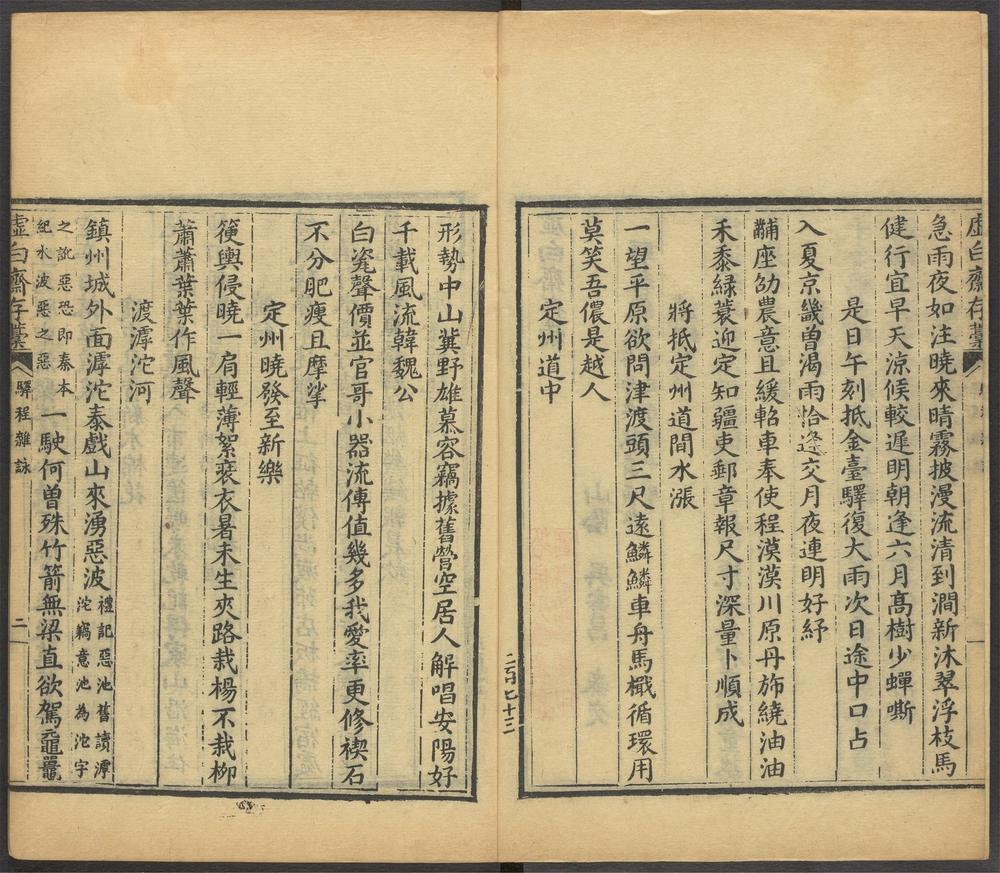 虛白齋存藁
一
急雨夜如注曉來晴霧披漫流清到澗新沐翠浮枝馬
健行宜早天涼候較遲明朝逢六月高樹少蟬嘶
是日午刻抵金臺驛復大雨次日途中口占
入夏京畿曽渴雨恰逢交月夜連明好紓
黼座劭農意且緩軺車奉使程漠漠川原丹斾繞油油
禾黍綠蓑迎定知疆吏郵章報尺寸深量卜順成
將抵定州道間水漲
一望平原欲問津渡頭三尺遠鱗鱗車舟馬檝循環用
莫笑吾儂是越人
定州道中
二百七十三
形勢中山冀野雄慕容竊據舊營空居人解唱安陽好
千載風流韓魏公
白瓷聲價並官哥小器流傳值幾多我愛率更修禊石
不分肥瘦且摩挲
定州曉發至新樂
箯輿侵曉一肩輕薄絮裘衣暑未生夾路栽楊不栽柳
蕭蕭葉葉作風聲
渡滹沱河
鎮州城外面滹沱泰戲山來湧惡波禮記惡池舊讀滹
沱竊意池為沱字
之訛惡恐即秦本
紀水波惡之惡一駛何曽殊竹箭無梁直欲駕黿鼉
虛白齋存藁
驛程雜詠
二